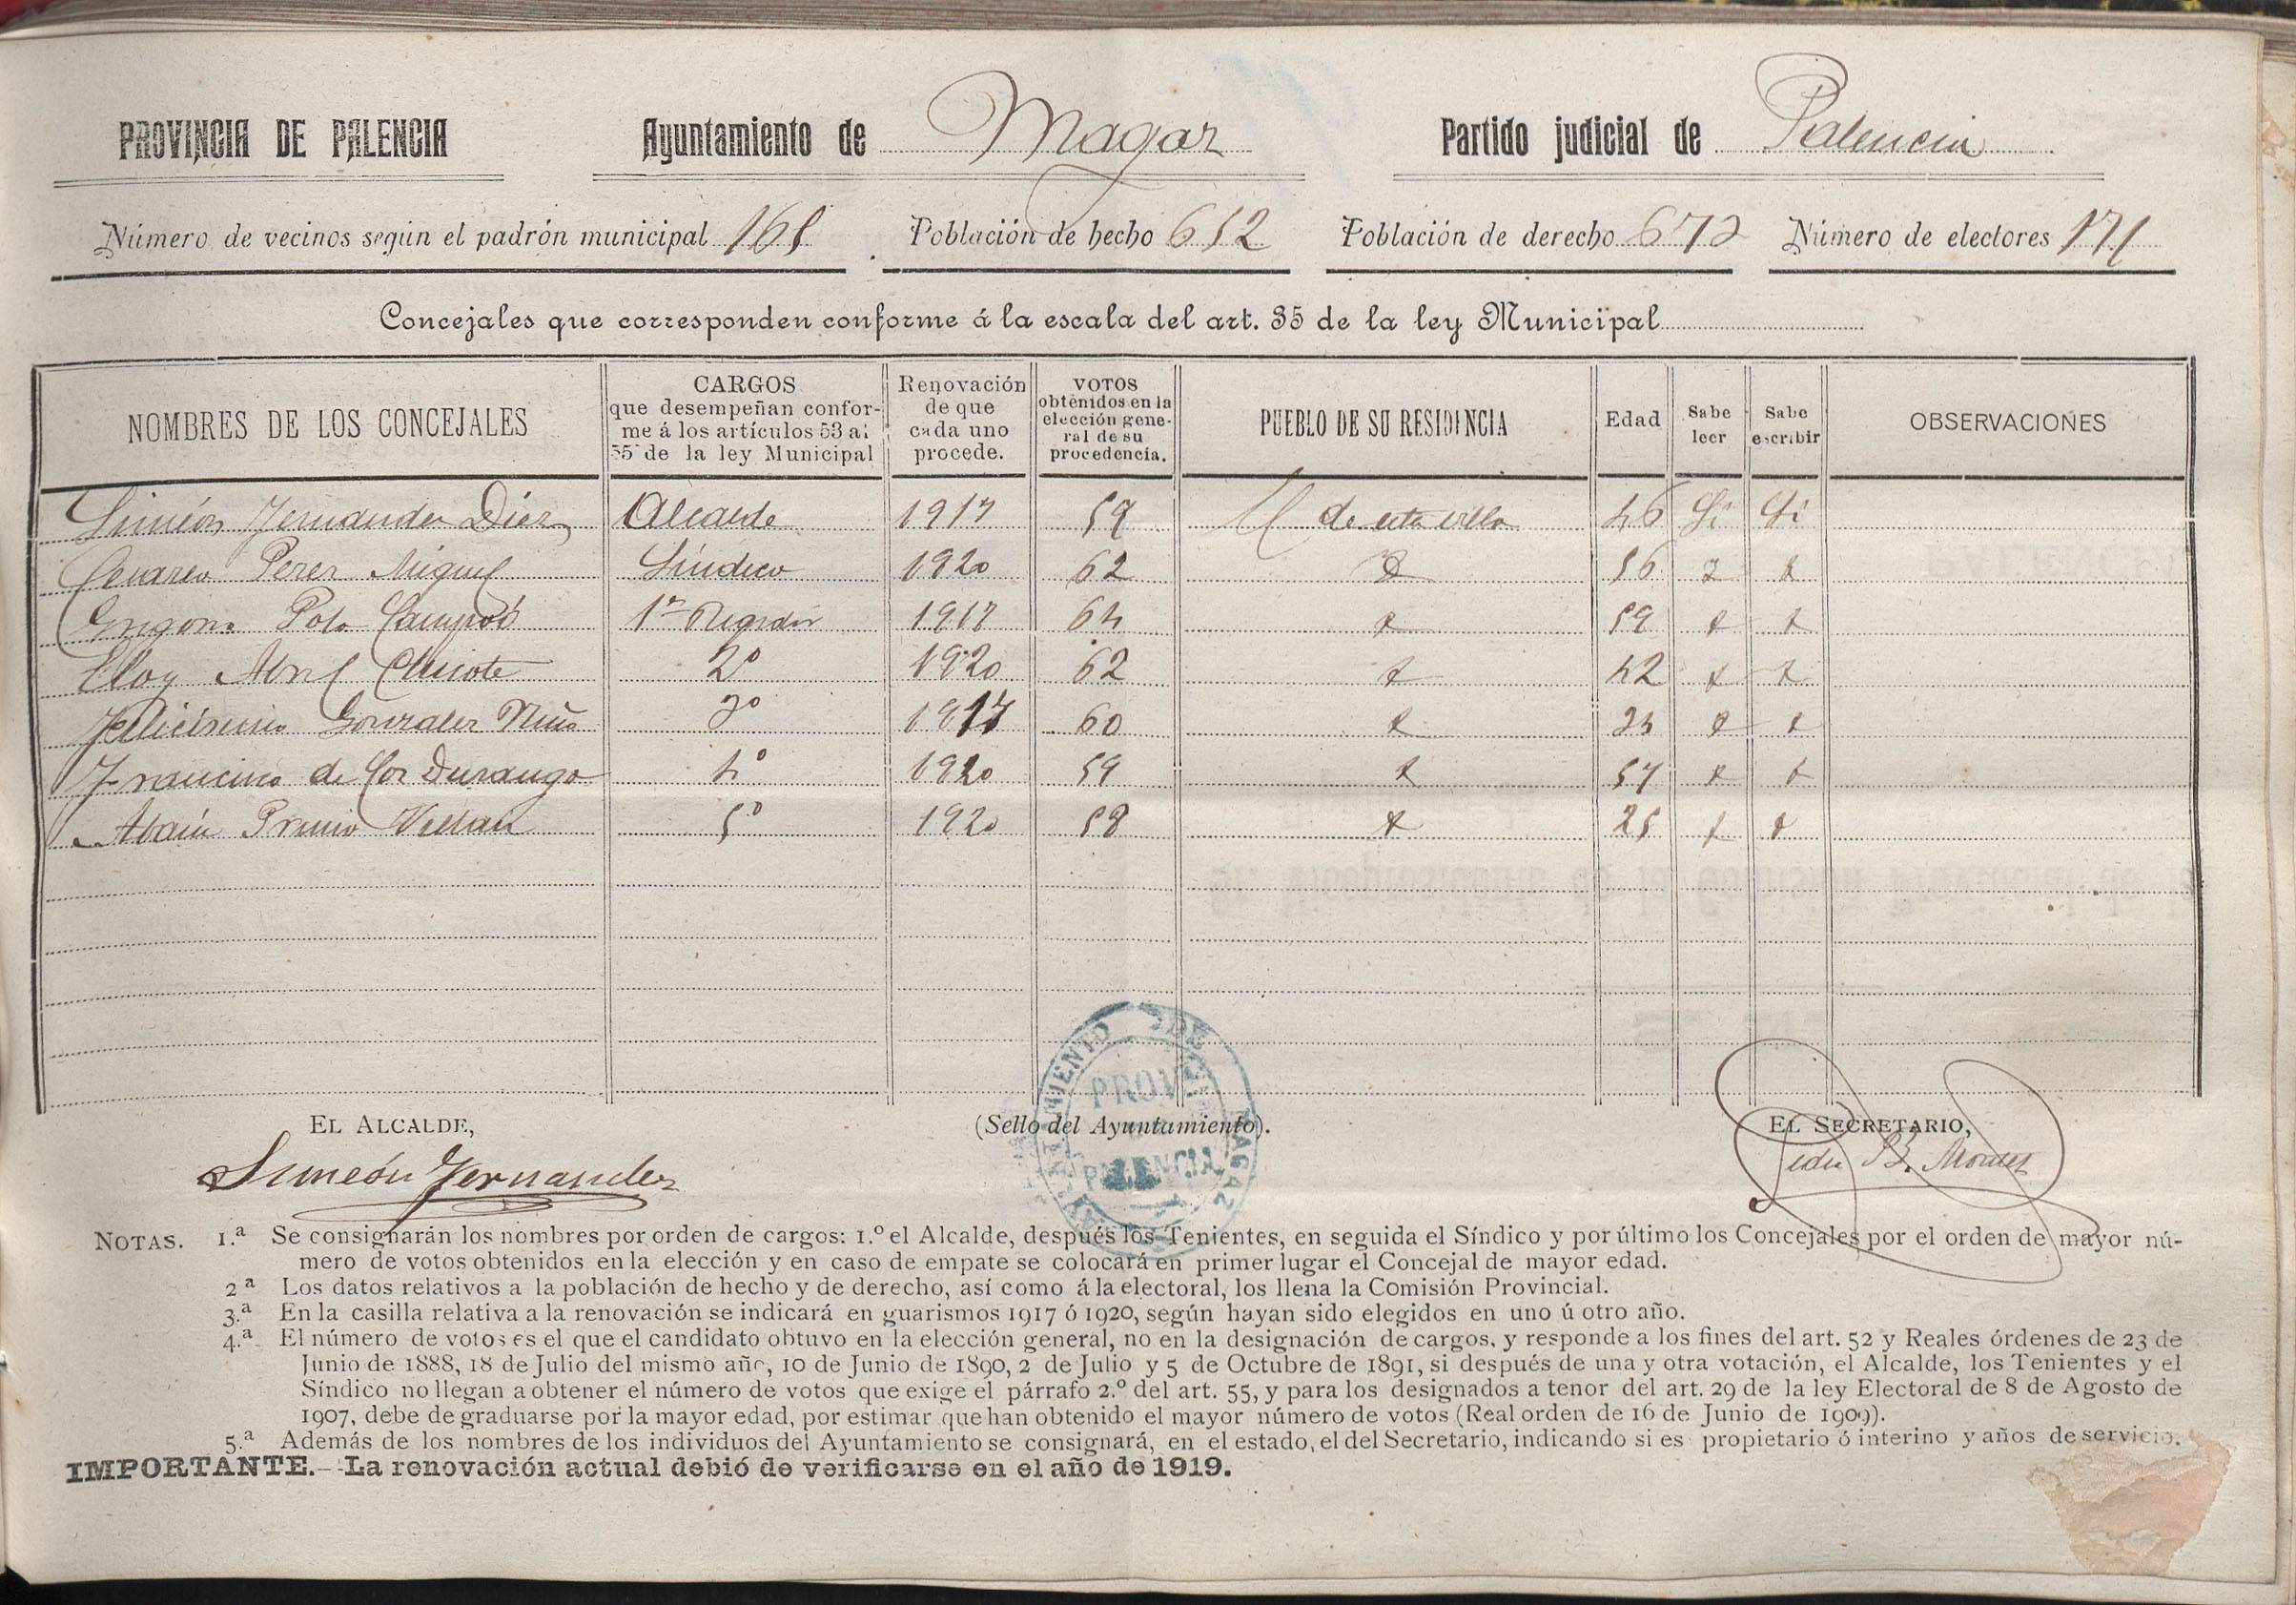 PROVINCIA DE PALENCIA Ayuntamiento de Magaz Partido judicial de Palencia
Número de vecinos según el padrón municipal 165 Población de hecho 652 Población de derecho 672 Número de electores 171
Concejales que corresponden conforme á la escala del art. 35 de la ley Municipal
NOMBRES DE LOS CONCEJALES
CARGOS
que desempeñan confor-
me á los artículos 53 al
55 de la ley Municipal
Renovación
de que
cada uno
procede.
VOTOS
obtenidos en la
elección gene-
ral de su
procedencia.
PUEBLO DE SU RESIDENCIA
Edad
Sabe
leer
Sabe
escribir
OBSERVACIONES
Simeón Fernandez Diez Alcalde 1917 59 de esta villa 46 Si Si
Cesareo Perez Miguel Síndico 1920 62 56
Gregorio Polo 1er Regidor 1917 64 59
Eloy Abril Chicote 2º 1920 62 42
Felicísimo Gonzalez Niño 3º 1917 60
Francisco de Cos Durango 4º 1920 59 57
5º 1920 58 25
EL ALCALDE,
Simeón Fernandez
(Sello del Ayuntamiento).
AYUNTAMIENTO DE MAGAZ
PROV
PALENCIA
EL SECRETARIO,
Pedro B. Montes
NOTAS. 1.ª Se consignarán los nombres por orden de cargos: 1.º el Alcalde, después los Tenientes, en seguida el Síndico y por último los Concejales por el orden de mayor nú-
mero de votos obtenidos en la elección y en caso de empate se colocará en primer lugar el Concejal de mayor edad.
2ª Los datos relativos a la población de hecho y de derecho, así como á la electoral, los llena la Comisión Provincial.
3.ª En la casilla relativa a la renovación se indicará en guarismos 1917 ó 1920, según hayan sido elegidos en uno ú otro año.
4.ª El número de votos es el que el candidato obtuvo en la elección general, no en la designación de cargos, y responde a los fines del art. 52 y Reales órdenes de 23 de
Junio de 1888, 18 de Julio del mismo año, 10 de Junio de 1890, 2 de Julio y 5 de Octubre de 1891, si después de una y otra votación, el Alcalde, los Tenientes y el
Síndico no llegan a obtener el número de votos que exige el párrafo 2.º del art. 55, y para los designados a tenor del art. 29 de la ley Electoral de 8 de Agosto de
1907, debe de graduarse por la mayor edad, por estimar que han obtenido el mayor número de votos (Real orden de 16 de Junio de 1909).
5.ª Además de los nombres de los individuos del Ayuntamiento se consignará, en el estado, el del Secretario, indicando si es propietario ó interino y años de servicio.
IMPORTANTE.—La renovación actual debió de verificarse en el año de 1919.